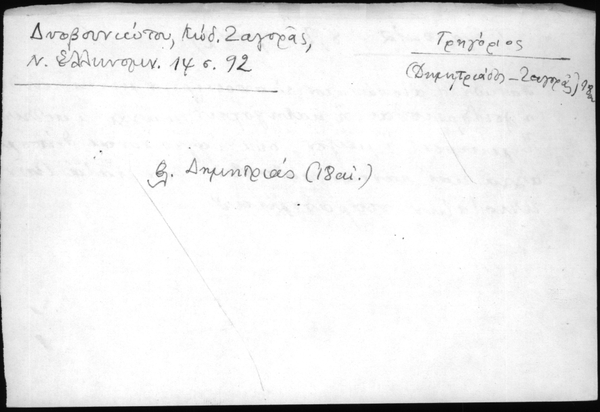 Δυοβουνιώτου, Κώδ. Ζαγορᾶς,
Ν. Ἑλληνομν. 14 σ. 92
Γρηγόριος
(Δημητριάδος – Ζαγορᾶς) 18
βλ. Δημητριάς (18 αἰ.)